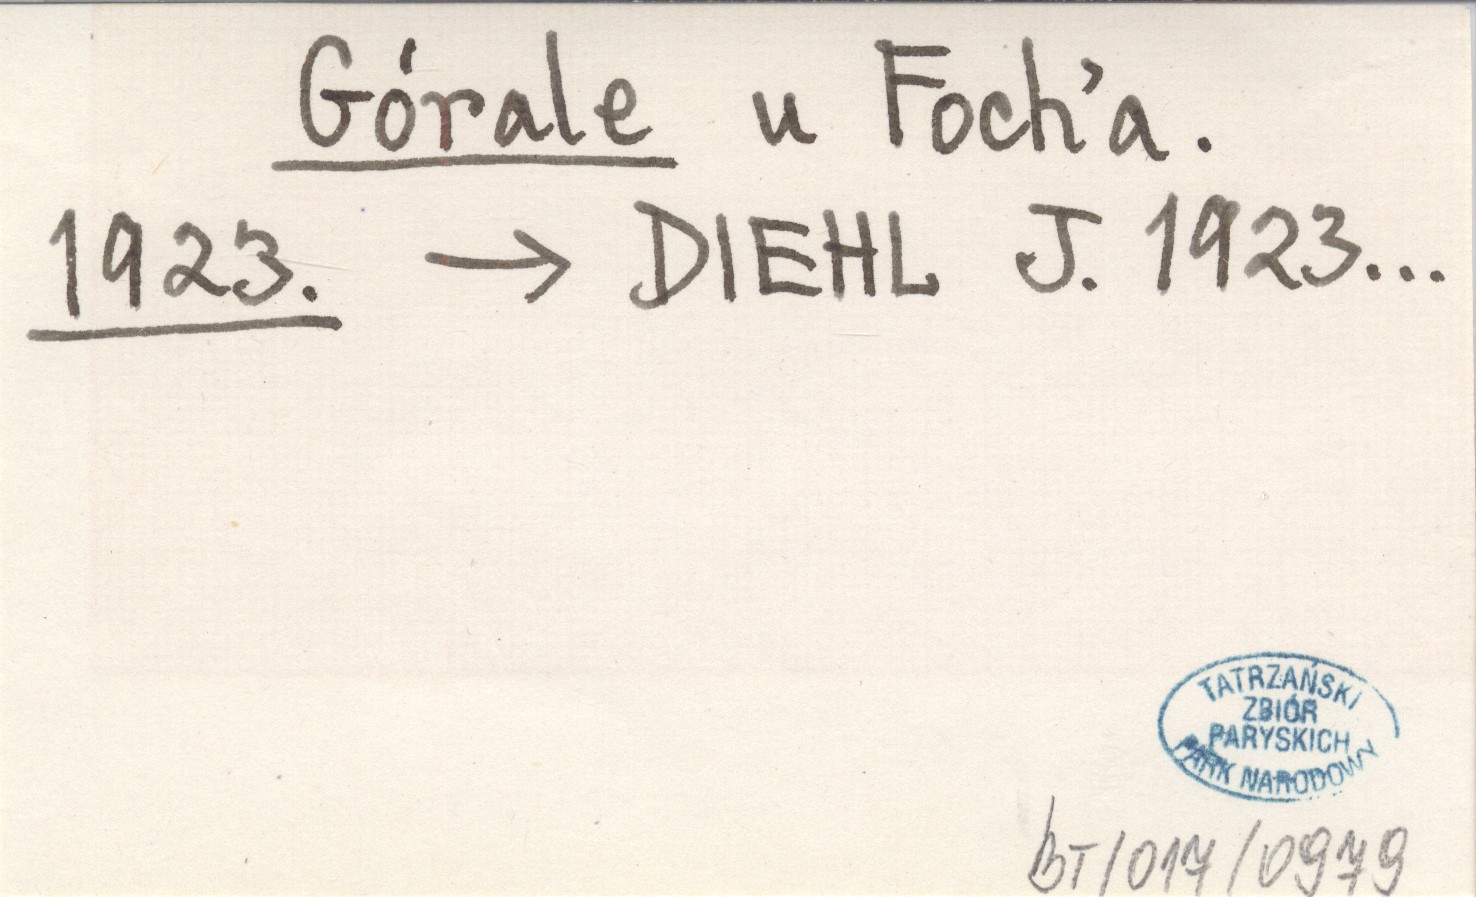 Górale u Foch'a.
1923. → DIEHL J. 1923...
TATRZAŃSKI
ZBIÓR
PARYSKICH
PARK NARODOWY
BT/017/0979